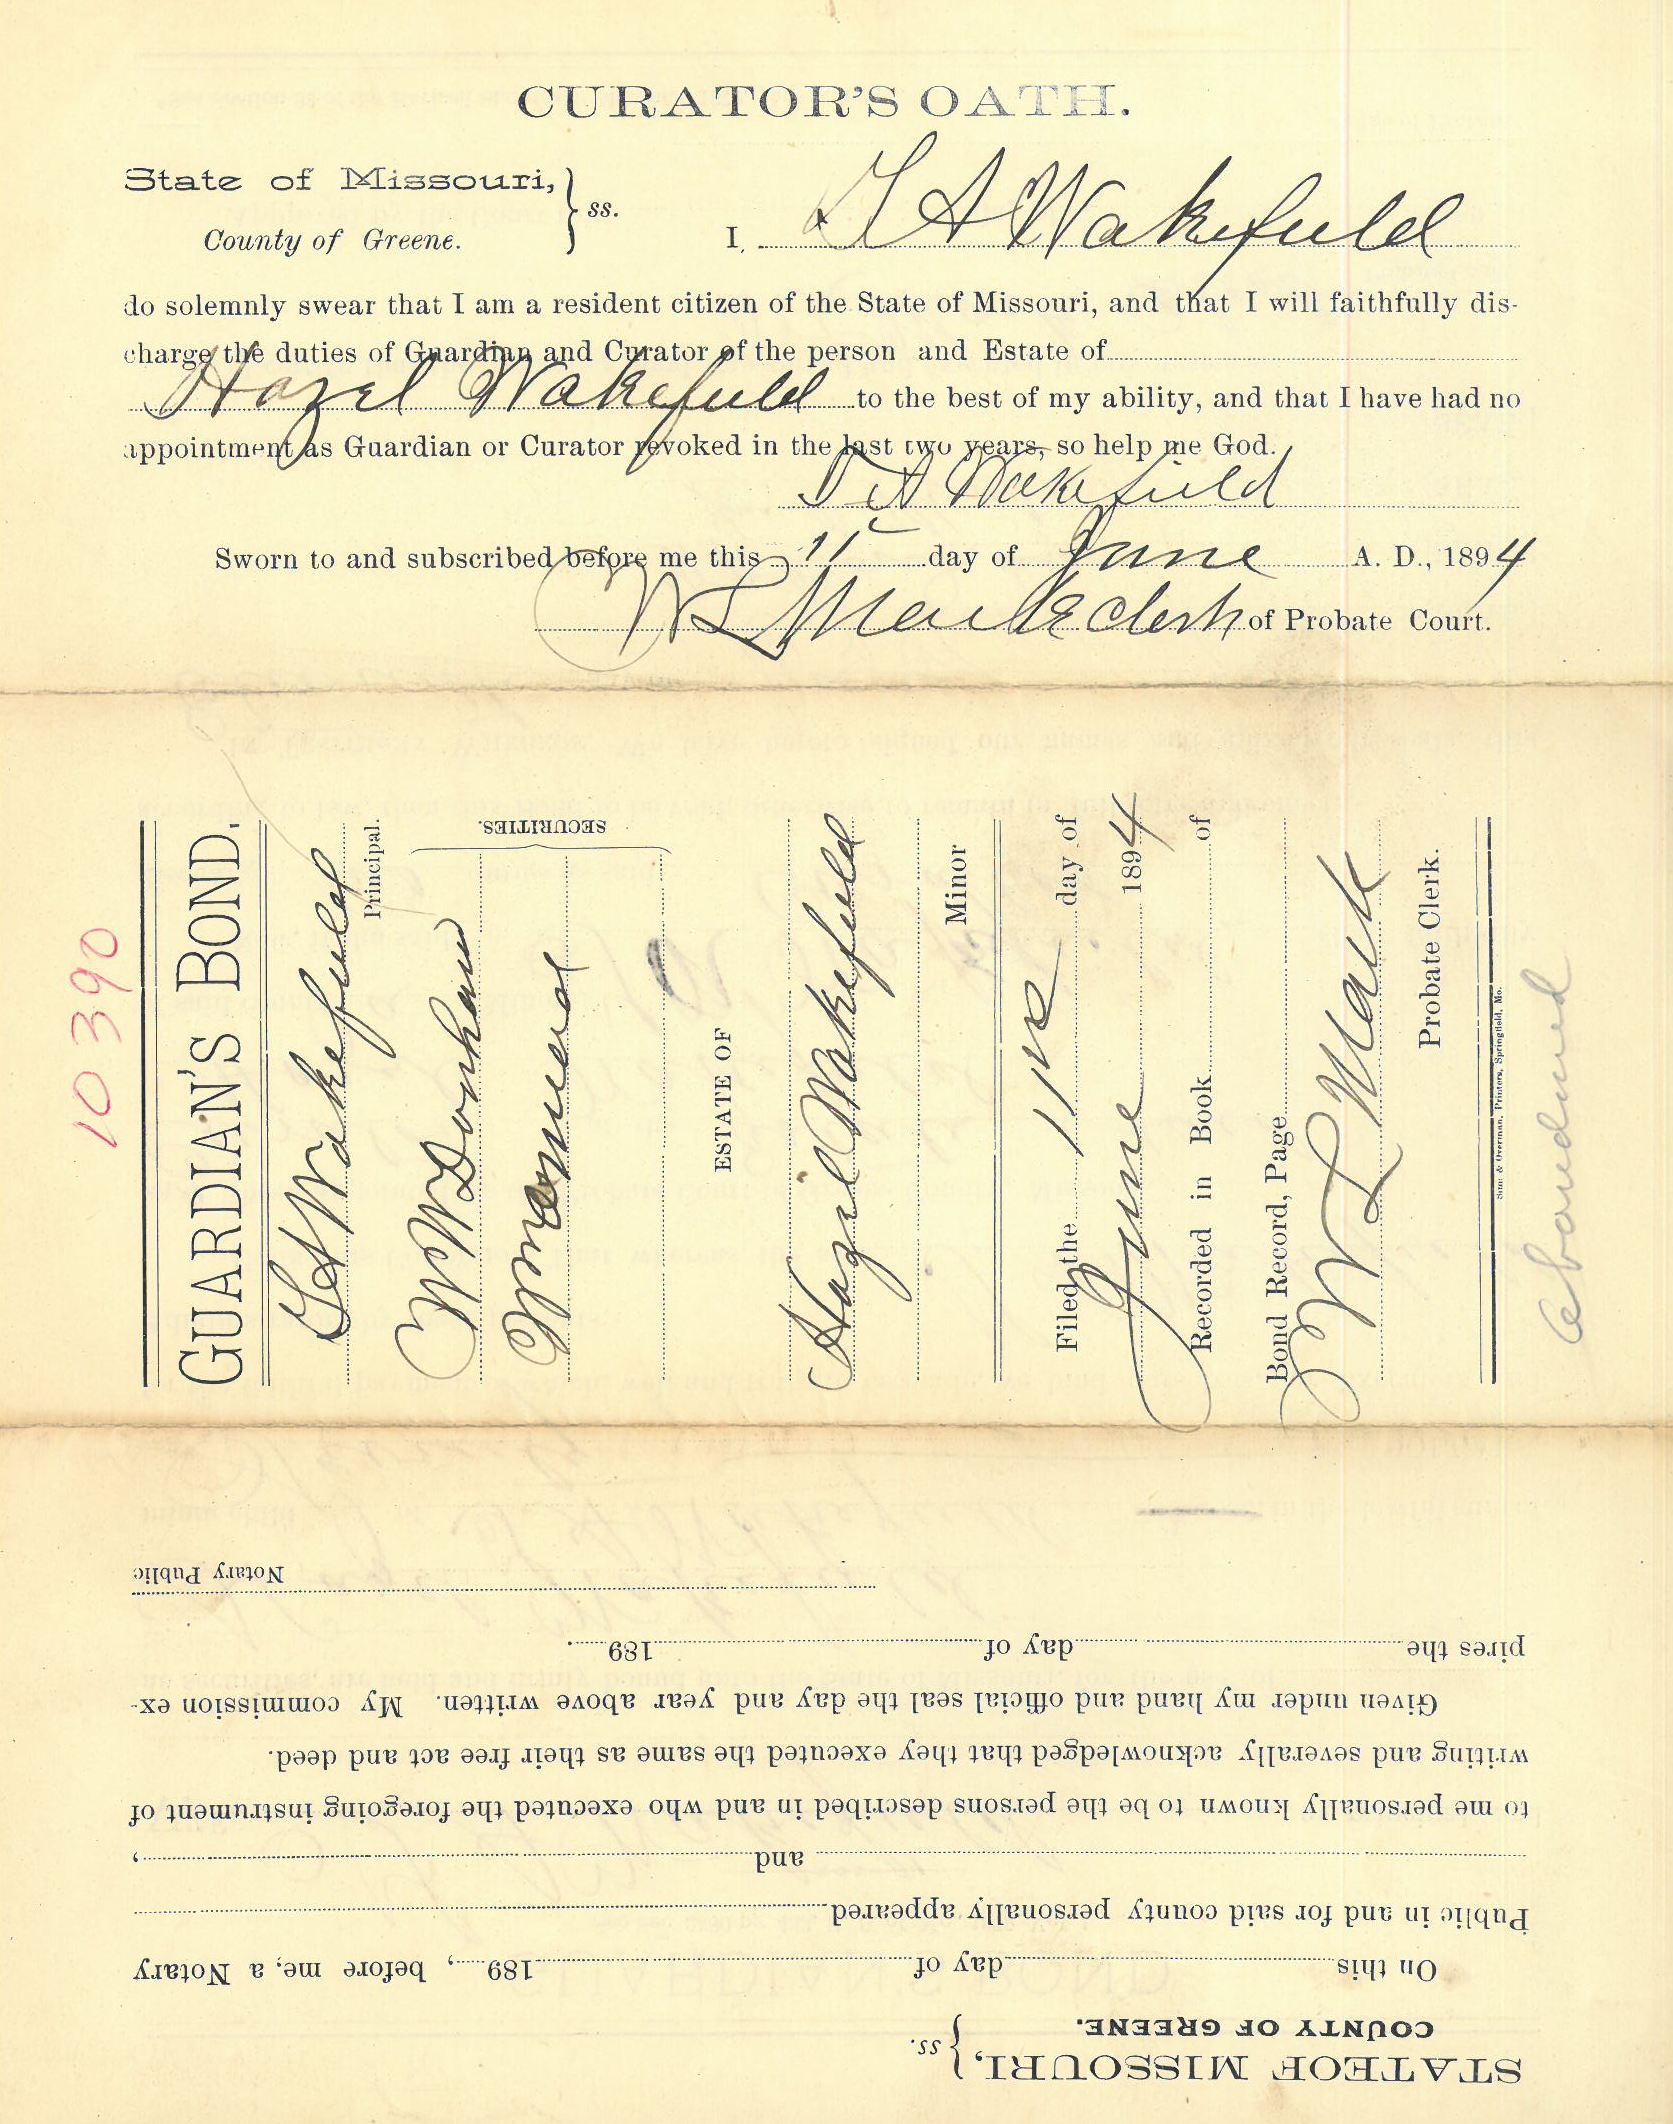 CURATOR'S OATH.
State of Missouri,
County of Greene. } ss.
I, S A Wakefield
do solemnly swear that I am a resident citizen of the State of Missouri, and that I will faithfully dis-
charge the duties of Guardian and Curator of the person and Estate of
Hazel Wakefield to the best of my ability, and that I have had no
appointment as Guardian or Curator revoked in the last two years, so help me God.
A Wakefield
Sworn to and subscribed before me this 11 day of June A. D., 1894
W L Mack Clerk of Probate Court.
10 390
GUARDIAN'S BOND.
S A Wakefield
Principal.
W W Donham
SECURITIES.
ESTATE OF
Hazel Wakefield
Minor
Filed the 11th day of
June 1894
Recorded in Book of
Bond Record, Page
W L Mack
Probate Clerk.
Printers, Springfield, Mo.
Abandoned
STATE OF MISSOURI,
COUNTY OF GREENE. } ss.
On this day of 189 , before me, a Notary
Public in and for said county personally appeared
and ,
to me personally known to be the persons described in and who executed the foregoing instrument of
writing and severally acknowledged that they executed the same as their free act and deed.
Given under my hand and official seal the day and year above written. My commission ex-
pires the day of 189 .
Notary Public